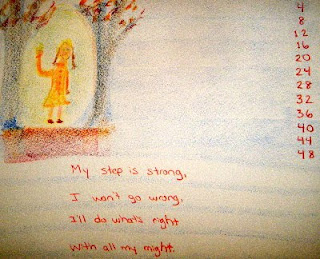 4
8
12
16
20
24
28
32
36
40
44
48
My step is strong,
I won't go wrong,
I'll do what's right
With all my might.